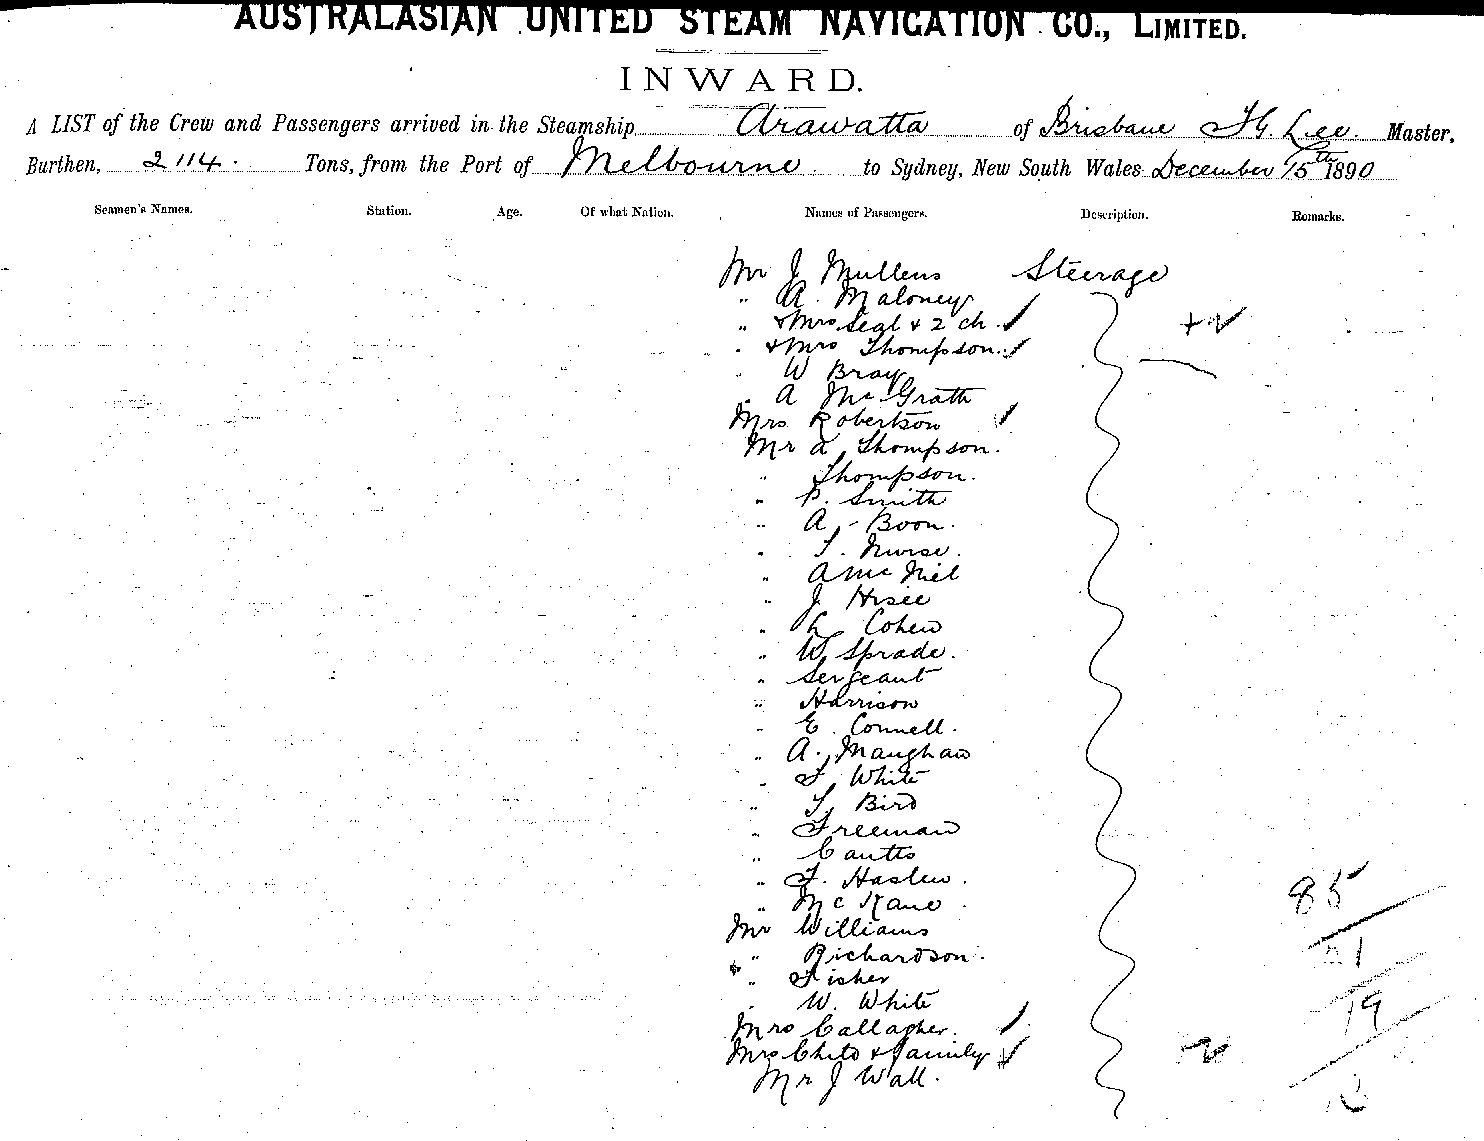 AUSTRALASIAN UNITED STEAM NAVIGATION CO., LIMITED.
INWARD.
A LIST of the Crew and Passengers arrived in the Steamship Arawatta of Brisbane Lee. Master,
Burthen, 2114. Tons, from the Port of Melbourne. to Sydney, New South Wales December 15th 1890
Seamen's Names. Station. Age. Of what Nation. Names of Passengers. Description. Remarks.
Mr J Mullens Steerage
" A. Maloney
" & Mrs Segl & 2 ch.
" & Mrs Thompson.
" W Bray
" A McGrath
Mrs Robertson
Mr A, Thompson.
" Thompson.
" P. Smith
" A, Boon.
" T. Nurse.
" A McNiel
" J
" Cohen
" W, Sprade.
" Sergeant
" Harrison
" E. Connell.
" A., Maughan
" F, White
" T, Bird
" Freeman
"
" F. Haslew.
" McKane
Mr Williams
" Richardson.
" Fisher
" W. White
Mrs Gallagher.
Mrs & family
Mr J Wall.
85
19